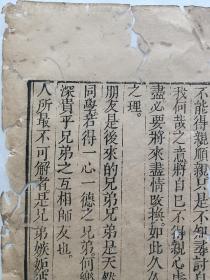 不能得親順親只是不知幾討
我何哉之者將自已不得親心處
盡必要將來盡情改換如此久久
之理。
朋友是後來的兄弟兄弟是天然
同學若得一心一德之兄弟何樂
深貴乎兄弟之互相師友也。
人所最不可解者是兄弟嫉妬